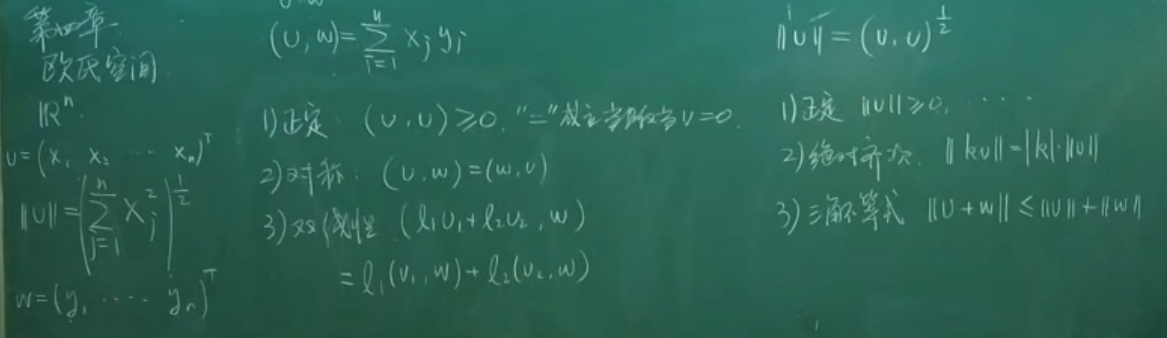 第四章.
欧氏空间
ℝⁿ.
υ=(x₁ x₂ ⋯ xₙ)ᵀ
‖υ‖=(∑ⱼ₌₁ⁿ xⱼ²)^½
w=(y₁ ⋯⋯ yₙ)ᵀ
(υ,w)=∑ⱼ₌₁ⁿ xⱼ yⱼ
1)正定: (υ,υ)≥0, “=”成立当且仅当υ=0.
2)对称: (υ,w)=(w,υ)
3)双线性 (l₁υ₁+l₂υ₂, w)
=l₁(υ₁,w)+l₂(υ₂,w)
‖υ‖=(υ,υ)^½
1)正定 ‖υ‖≥0, ⋯⋯
2)绝对齐次. ‖kυ‖=|k|·‖υ‖
3)三角不等式 ‖υ+w‖≤‖υ‖+‖w‖